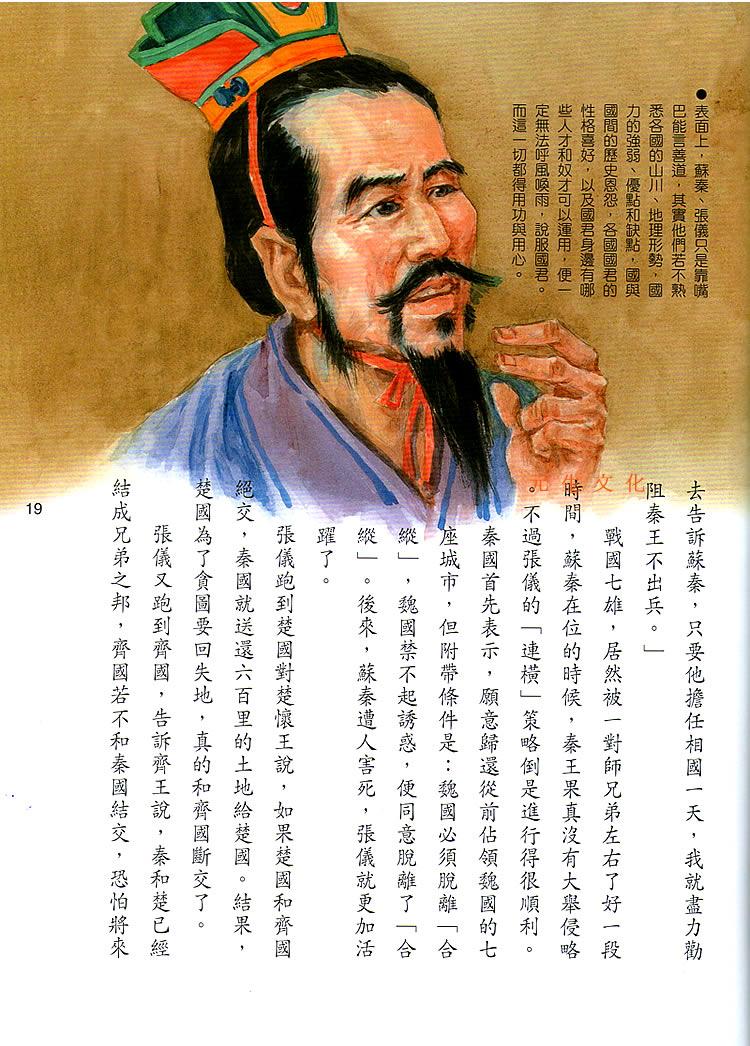 ●表面上，蘇秦、張儀只是靠嘴
巴能言善道，其實他們若不熟
悉各國的山川、地理形勢，國
力的強弱、優點和缺點，國與
國間的歷史恩怨，各國國君的
性格喜好，以及國君身邊有哪
些人才和奴才可以運用，便一
定無法呼風喚雨，說服國君。
而這一切都得用功與用心。
去告訴蘇秦，只要他擔任相國一天，我就盡力勸
阻秦王不出兵。」
戰國七雄，居然被一對師兄弟左右了好一段
時間，蘇秦在位的時候，秦王果真沒有大舉侵略
。不過張儀的「連橫」策略倒是進行得很順利。
秦國首先表示，願意歸還從前佔領魏國的七
座城市，但附帶條件是：魏國必須脫離「合
縱」，魏國禁不起誘惑，便同意脫離了「合
縱」。後來，蘇秦遭人害死，張儀就更加活
躍了。
張儀跑到楚國對楚懷王說，如果楚國和齊國
絕交，秦國就送還六百里的土地給楚國。結果，
楚國為了貪圖要回失地，真的和齊國斷交了。
張儀又跑到齊國，告訴齊王說，秦和楚已經
結成兄弟之邦，齊國若不和秦國結交，恐怕將來
19
文化